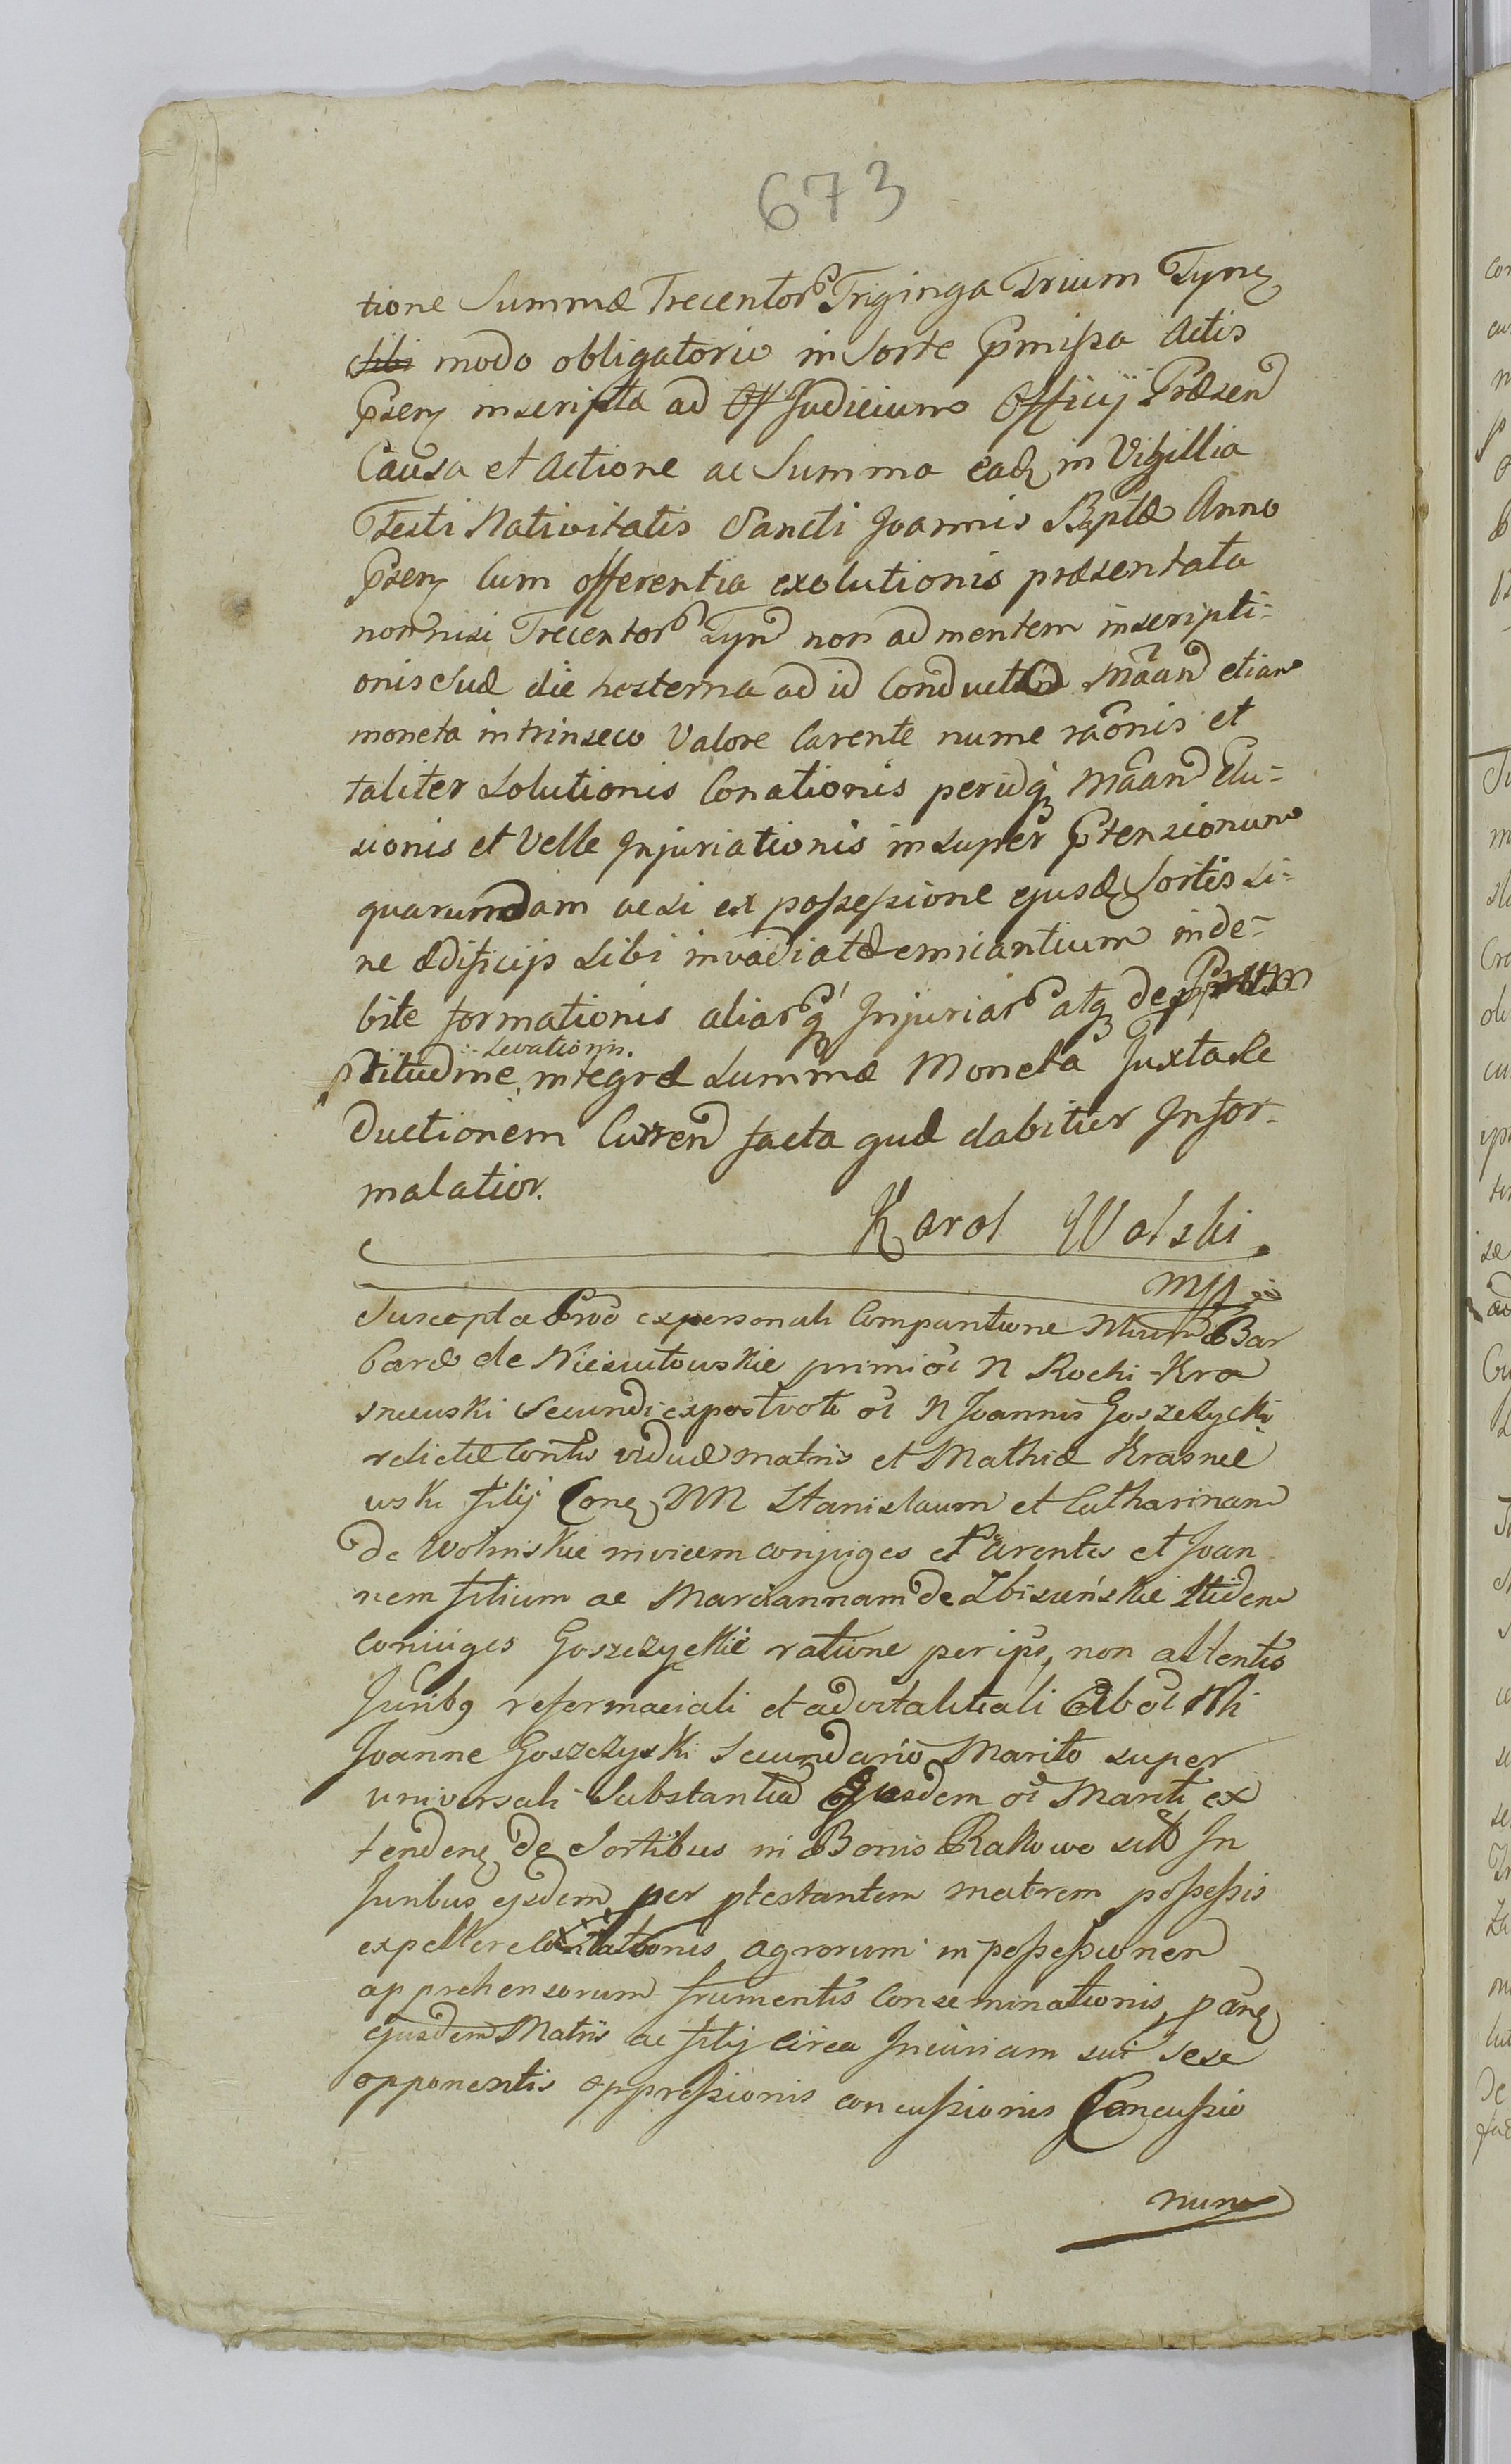 673
tione Summæ Trecentor Triginga Trium Tyne
sibi modo obligatorio in Sorte Pmissa Actis
Psen inscripta ad Off Judicium Officij Præsen
Causa et Actione ac Summa ead in Vigillia
Festi Nativitatis Sancti Joannis Bptæ Anno
Psen Cum offerentia exolutionis præsentata
nonnisi Trecentor Tyn non ad mentem inscripti=
onis Suæ die hesterna ad id Conduct Mãan etiam
moneta intrinseco Valore Carente nume raõnis et
taliter Solutionis Conationis peridq Mãan Elu=
sionis et Velle Injuriationis insuper Ptensionum
quarumdam acsi ex possessione ejusd Sortis Si=
ne Ædificijs Sibi invadiatæ emicantium inde=
bite formationis aliarq Injuriar atq de
Levationis.
ptitudine integræ Summæ Moneta Juxta Re
ductionem Curren facta quæ dabitur Infor=
malatior.
Karol Wolski
mp
Suscepta Pro ex personali Comparitione Bar
baræ de Niesiułowskie primi ol N Rochi Kra
sneuski Secundi ex post voti ol N Joannis Goszczycki
relictæ viduæ matris et Mathiæ Krasnee
wski filij Con NN Stanislaum et Catharinam
de Wolinskie invicem conjuges et Parentes et Joan
nem filium ac Mariannam de Zbisieńskie itidem
coniuges Goszczyckie ratione per ips, non attentis
Juribq reformaciali et advitalitiali Ab ol
Joanne Goszczyski Secundario Marito super
universali Substantia Ejusdem ol Mariti ex
tenden de Sortibus in Bonis Rakowo sitt In
Juribus ejsdem per ptestantem matrem possessis
expellere agrorum in possessionem
apprehensorum frumentis Conseminationis, pãne
ejusdem Matris ac filij circa Iniuriam sui sese
opponentis oppressionis concussionis Concussio
num